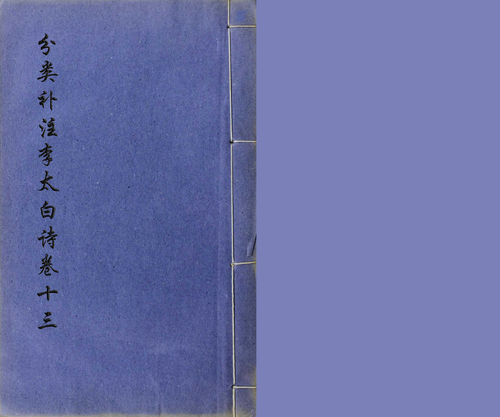 分类补注李太白诗卷十三